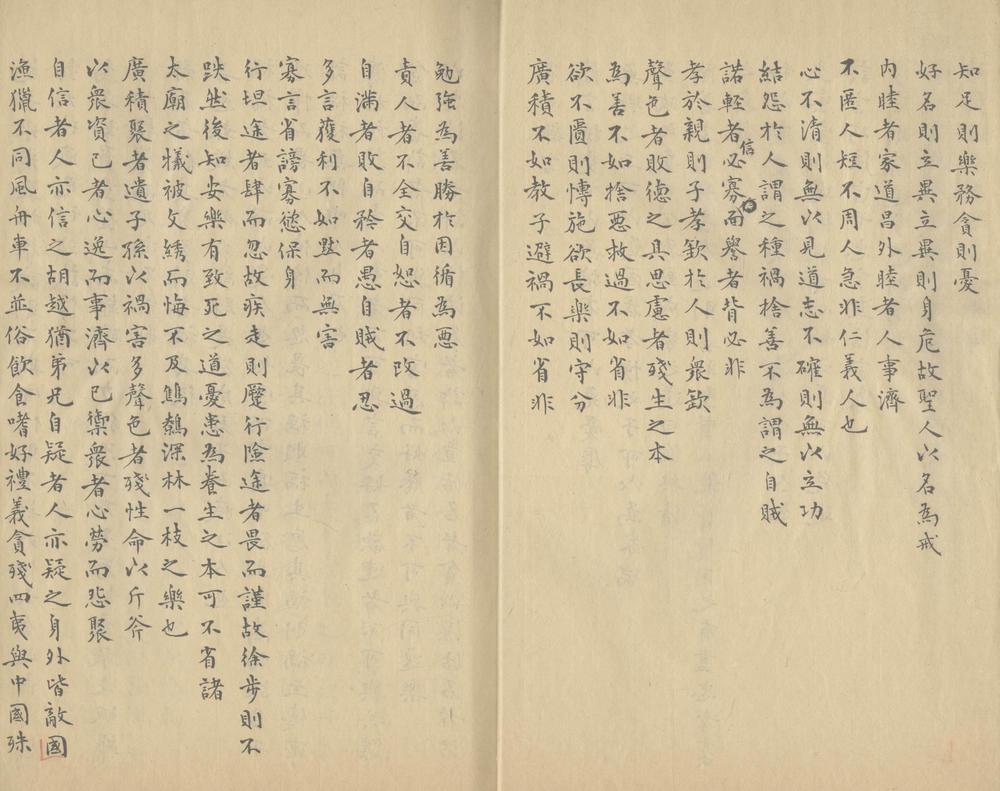 知足則樂務貪則憂
好名則立異立異則身危故聖人以名為戒
內睦者家道昌外睦者人事濟
不匿人短不周人急非仁義人也
心不清則無以見道志不確則無以立功
結怨於人謂之種禍捨善不為謂之自賊
諾輕者信必寡面譽者背必非
孝於親則子孝欽於人則衆欽
聲色者敗德之具思慮者殘生之本
為善不如捨惡救過不如省非
欲不匱則慱施欲長樂則守分
廣積不如教子避禍不如省非
勉強為善勝於因循為惡
責人者不全交自恕者不改過
自滿者敗自矜者愚自賊者忍
多言獲利不如默而無害
寡言省謗寡慾保身
行坦途者肆而忽故疾走則蹷行險途者畏而謹故徐步則不
跌然後知安樂有致死之道憂患為養生之本可不省諸
太廟之犧被文綉而悔不及鷦鷯深林一枝之樂也
廣積聚者遺子孫以禍害多聲色者殘性命以斤斧
以衆資己者心逸而事濟以己禦衆者心勞而怨聚
自信者人亦信之胡越猶弟兄自疑者人亦疑之身外皆敵國
漁獵不同風舟車不並俗飲食嗜好禮義貪殘四夷與中國殊